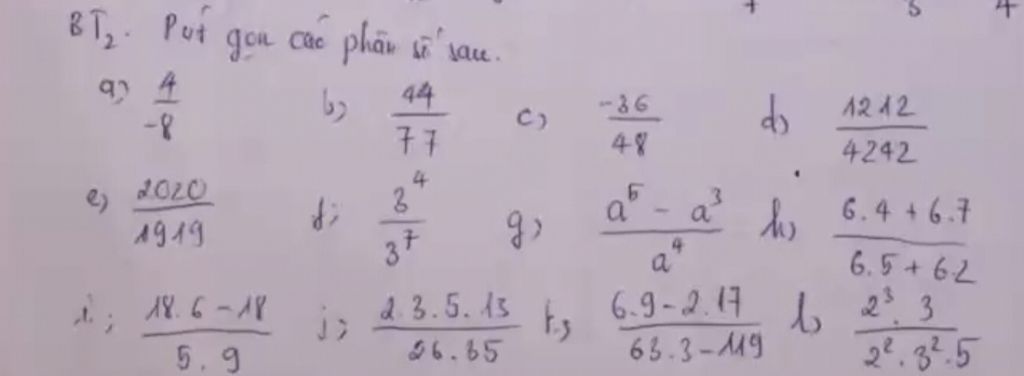 7 3 4
BT2. Rút gọn các phân số sau.
a) 4/-8 b) 44/77 c) -36/48 d) 1212/4242
e) 2020/1919 f; 3^4/3^7 g) (a^5 - a^3)/a^4 h) (6.4 + 6.7)/(6.5 + 6.2)
i; (18.6 - 18)/(5.9) j; (2.3.5.13)/(26.35) k; (6.9 - 2.17)/(63.3 - 119) l) (2^3.3)/(2^2.3^2.5)